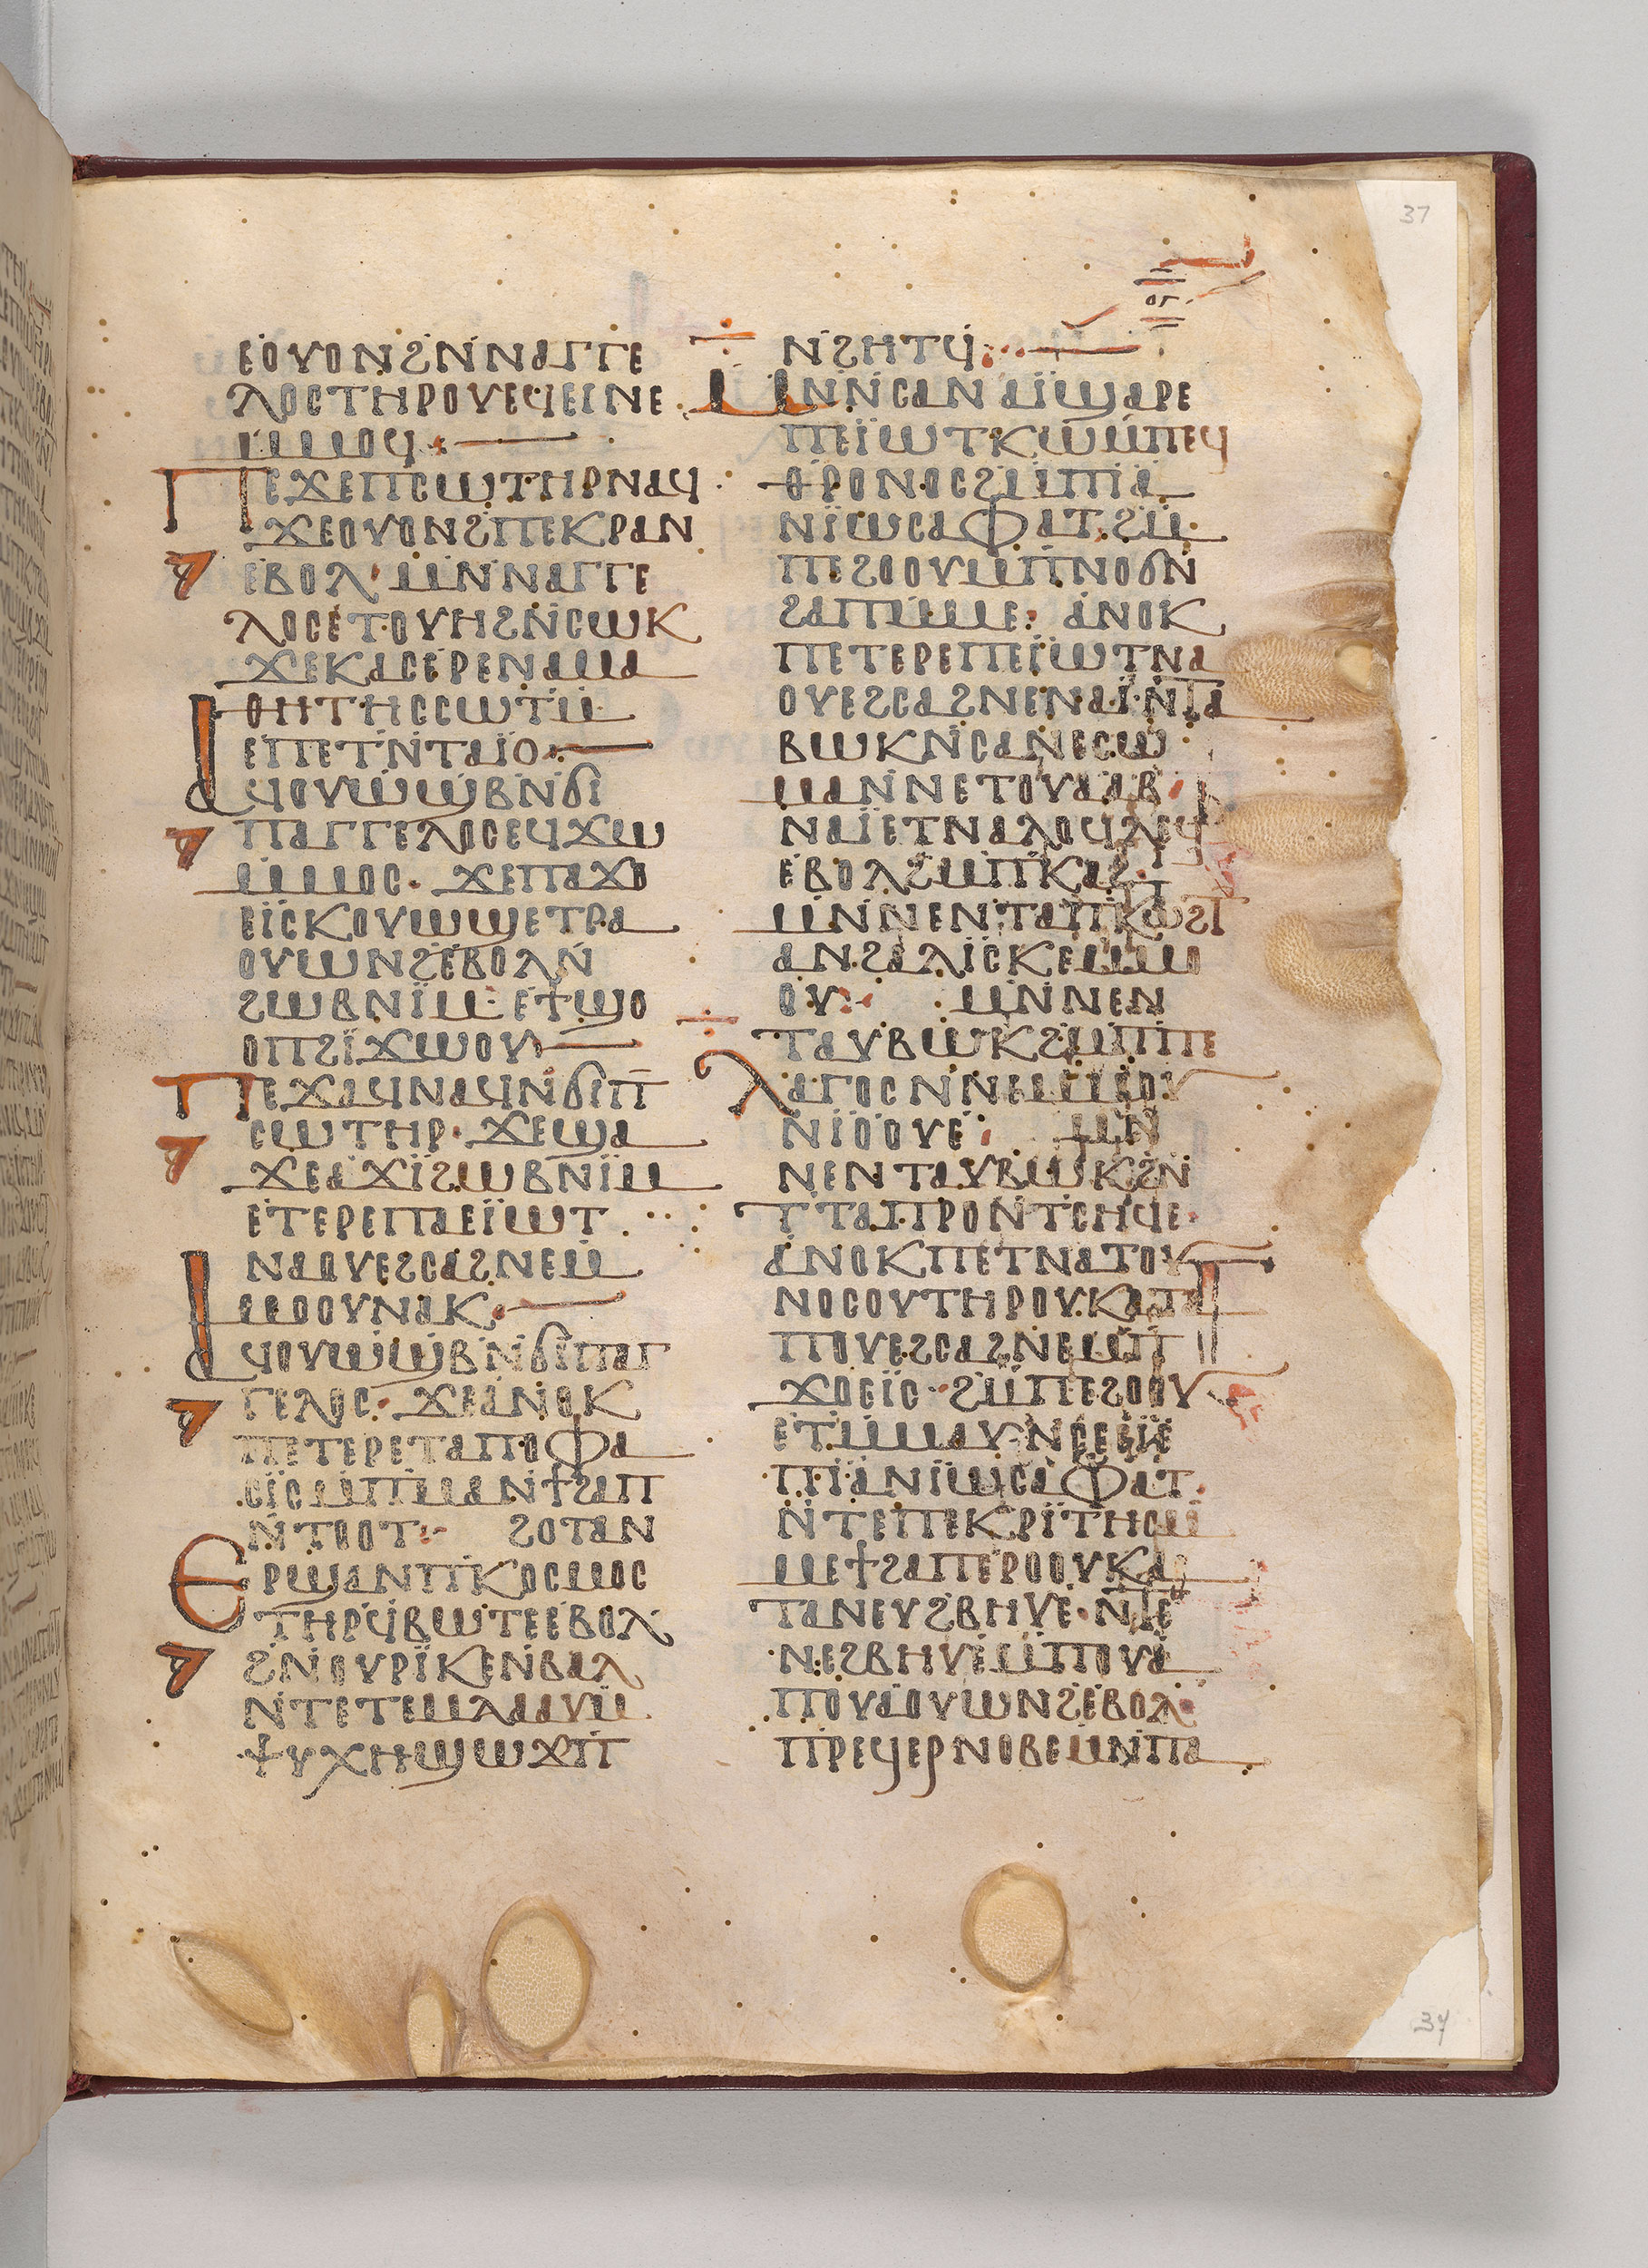 37
ⲟⲅ
ⲉⲟⲩⲟⲛϩⲛⲛⲁⲅⲅⲉ
ⲗⲟⲥⲧⲏⲣⲟⲩⲉϥⲉⲓⲛⲉ
ⲙⲙⲟϥ
ⲡⲉϫⲉⲡⲥⲱⲧⲏⲣⲛⲁϥ
ϫⲉⲟⲩⲟⲛϩⲡⲉⲕⲣⲁⲛ
ⲉⲃⲟⲗ ⲙⲛⲛⲁⲅⲅⲉ
ⲗⲟⲥⲉⲧⲟⲩⲏϩⲛⲥⲱⲕ
ϫⲉⲕⲁⲥⲉⲣⲉⲛⲁⲙⲁ
ⲑⲏⲧⲏⲥⲥⲱⲧⲙ
ⲉⲡⲉⲧⲛⲧⲁⲓⲟ
ⲁϥⲟⲩⲱϣⲃⲛϭⲓ
ⲡⲁⲅⲅⲉⲗⲟⲥⲉϥϫⲱ
ⲙⲙⲟⲥ· ϫⲉⲡⲁϫⲟ
ⲉⲓⲥⲕⲟⲩⲱϣⲉⲧⲣⲁ
ⲟⲩⲱⲛϩⲉⲃⲟⲗⲛ
ϩⲱⲃⲛⲓⲙ ⲉϯϣⲟ
ⲟⲡϩⲓϫⲱⲟⲩ
ⲡⲉϫⲁϥⲛⲁϥⲛϭⲓⲡ
ⲥⲱⲧⲏⲣ· ϫⲉϣⲁ
ϫⲉⲁϫⲓϩⲱⲃⲛⲓⲙ
ⲉⲧⲉⲣⲉⲡⲁⲉⲓⲱⲧ
ⲛⲁⲟⲩⲉϩⲥⲁϩⲛⲉⲙ
ⲙⲟⲟⲩⲛⲁⲕ
ⲁϥⲟⲩⲱϣⲃⲛϭⲓⲡⲁⲅ
ⲅⲉⲗⲟⲥ· ϫⲉⲁⲛⲟⲕ
ⲡⲉⲧⲉⲣⲉⲧⲁⲡⲟⲫⲁ
ⲥⲓⲥⲙⲡⲙⲁⲛϯϩⲁⲡ
ⲛⲧⲟⲟⲧ ϩⲟⲧⲁⲛ
ⲉⲣϣⲁⲛⲡⲕⲟⲥⲙⲟⲥ
ⲧⲏⲣϥⲃⲱⲧⲉⲉⲃⲟⲗ
ϩⲛⲟⲩⲣⲓⲕⲉⲛⲃⲁⲗ
ⲛⲧⲉⲧⲉⲙⲗⲁⲁⲩⲙ
ⲯⲩⲭⲏϣⲱϫⲡ
ⲛϩⲏⲧϥ
ⲙⲛⲛⲥⲁⲛⲁⲓϣⲁⲣⲉ
ⲡⲉⲓⲱⲧⲕⲱⲙⲡⲉϥ
ⲑⲣⲟⲛⲟⲥϩⲙⲡⲓⲁ
ⲛⲓⲱⲥⲁⲫⲁⲧ·ϩⲙ
ⲡⲉϩⲟⲟⲩⲙⲡⲛⲟϭⲛ
ϩⲁⲡⲙⲙⲉ: ⲁⲛⲟⲕ
ⲡⲉⲧⲉⲣⲉⲡⲉⲓⲱⲧⲛⲁ
ⲟⲩⲉϩⲥⲁϩⲛⲉⲛⲁⲓ·ⲛⲧⲁ
ⲃⲱⲕⲛⲥⲁⲛⲉⲥⲱ
ⲙⲁⲛⲛⲉⲧⲟⲩⲁⲁⲃ
ⲛⲁⲓⲉⲧⲛⲁⲗⲟϥⲗⲉϥ
ⲉⲃⲟⲗϩⲙⲡⲕⲁϩ·
ⲙⲛⲛⲉⲛⲧⲁⲡⲕⲱϩⲧ
ⲁⲛϩⲁⲗⲓⲥⲕⲉⲙⲙⲟ
ⲟⲩ ⲙⲛⲛⲉⲛ
ⲧⲁⲩⲃⲱⲕϩⲙⲡⲡⲉ
ⲗⲁⲅⲟⲥⲛⲛⲉⲙⲙⲟⲩ
ⲛⲓⲟⲟⲩⲉ ⲙⲛ
ⲛⲉⲛⲧⲁⲩⲃⲱⲕϩⲛ
ⲧⲧⲁⲡⲣⲟⲛⲧⲥⲏϥⲉ·
ⲁⲛⲟⲕⲡⲉⲧⲛⲁⲧⲟⲩ
ⲛⲟⲥⲟⲩⲧⲏⲣⲟⲩ·ⲕⲁⲧⲁ
ⲡⲟⲩⲉϩⲥⲁϩⲛⲉⲙⲡ
ϫⲟⲉⲓⲥ·ϩⲙⲡⲉϩⲟⲟⲩ
ⲉⲧⲙⲙⲁⲩ·ⲛⲥⲉⲉⲓⲉ
ⲡⲓⲁⲛⲓⲱⲥⲁⲫⲁⲧ·
ⲛⲧⲉⲡⲉⲕⲣⲓⲧⲏⲥⲙ
ⲙⲉϯϩⲁⲡⲉⲣⲟⲟⲩⲕⲁ
ⲧⲁⲛⲉⲩϩⲃⲏⲩⲉ·ⲛⲧⲉ
ⲛⲉϩⲃⲏⲩⲉⲙⲡⲟⲩⲁ
ⲡⲟⲩⲁⲟⲩⲱⲛϩⲉⲃⲟⲗ
ⲡⲣⲉϥⲉⲣⲛⲟⲃⲉⲙⲛⲡⲁ
37